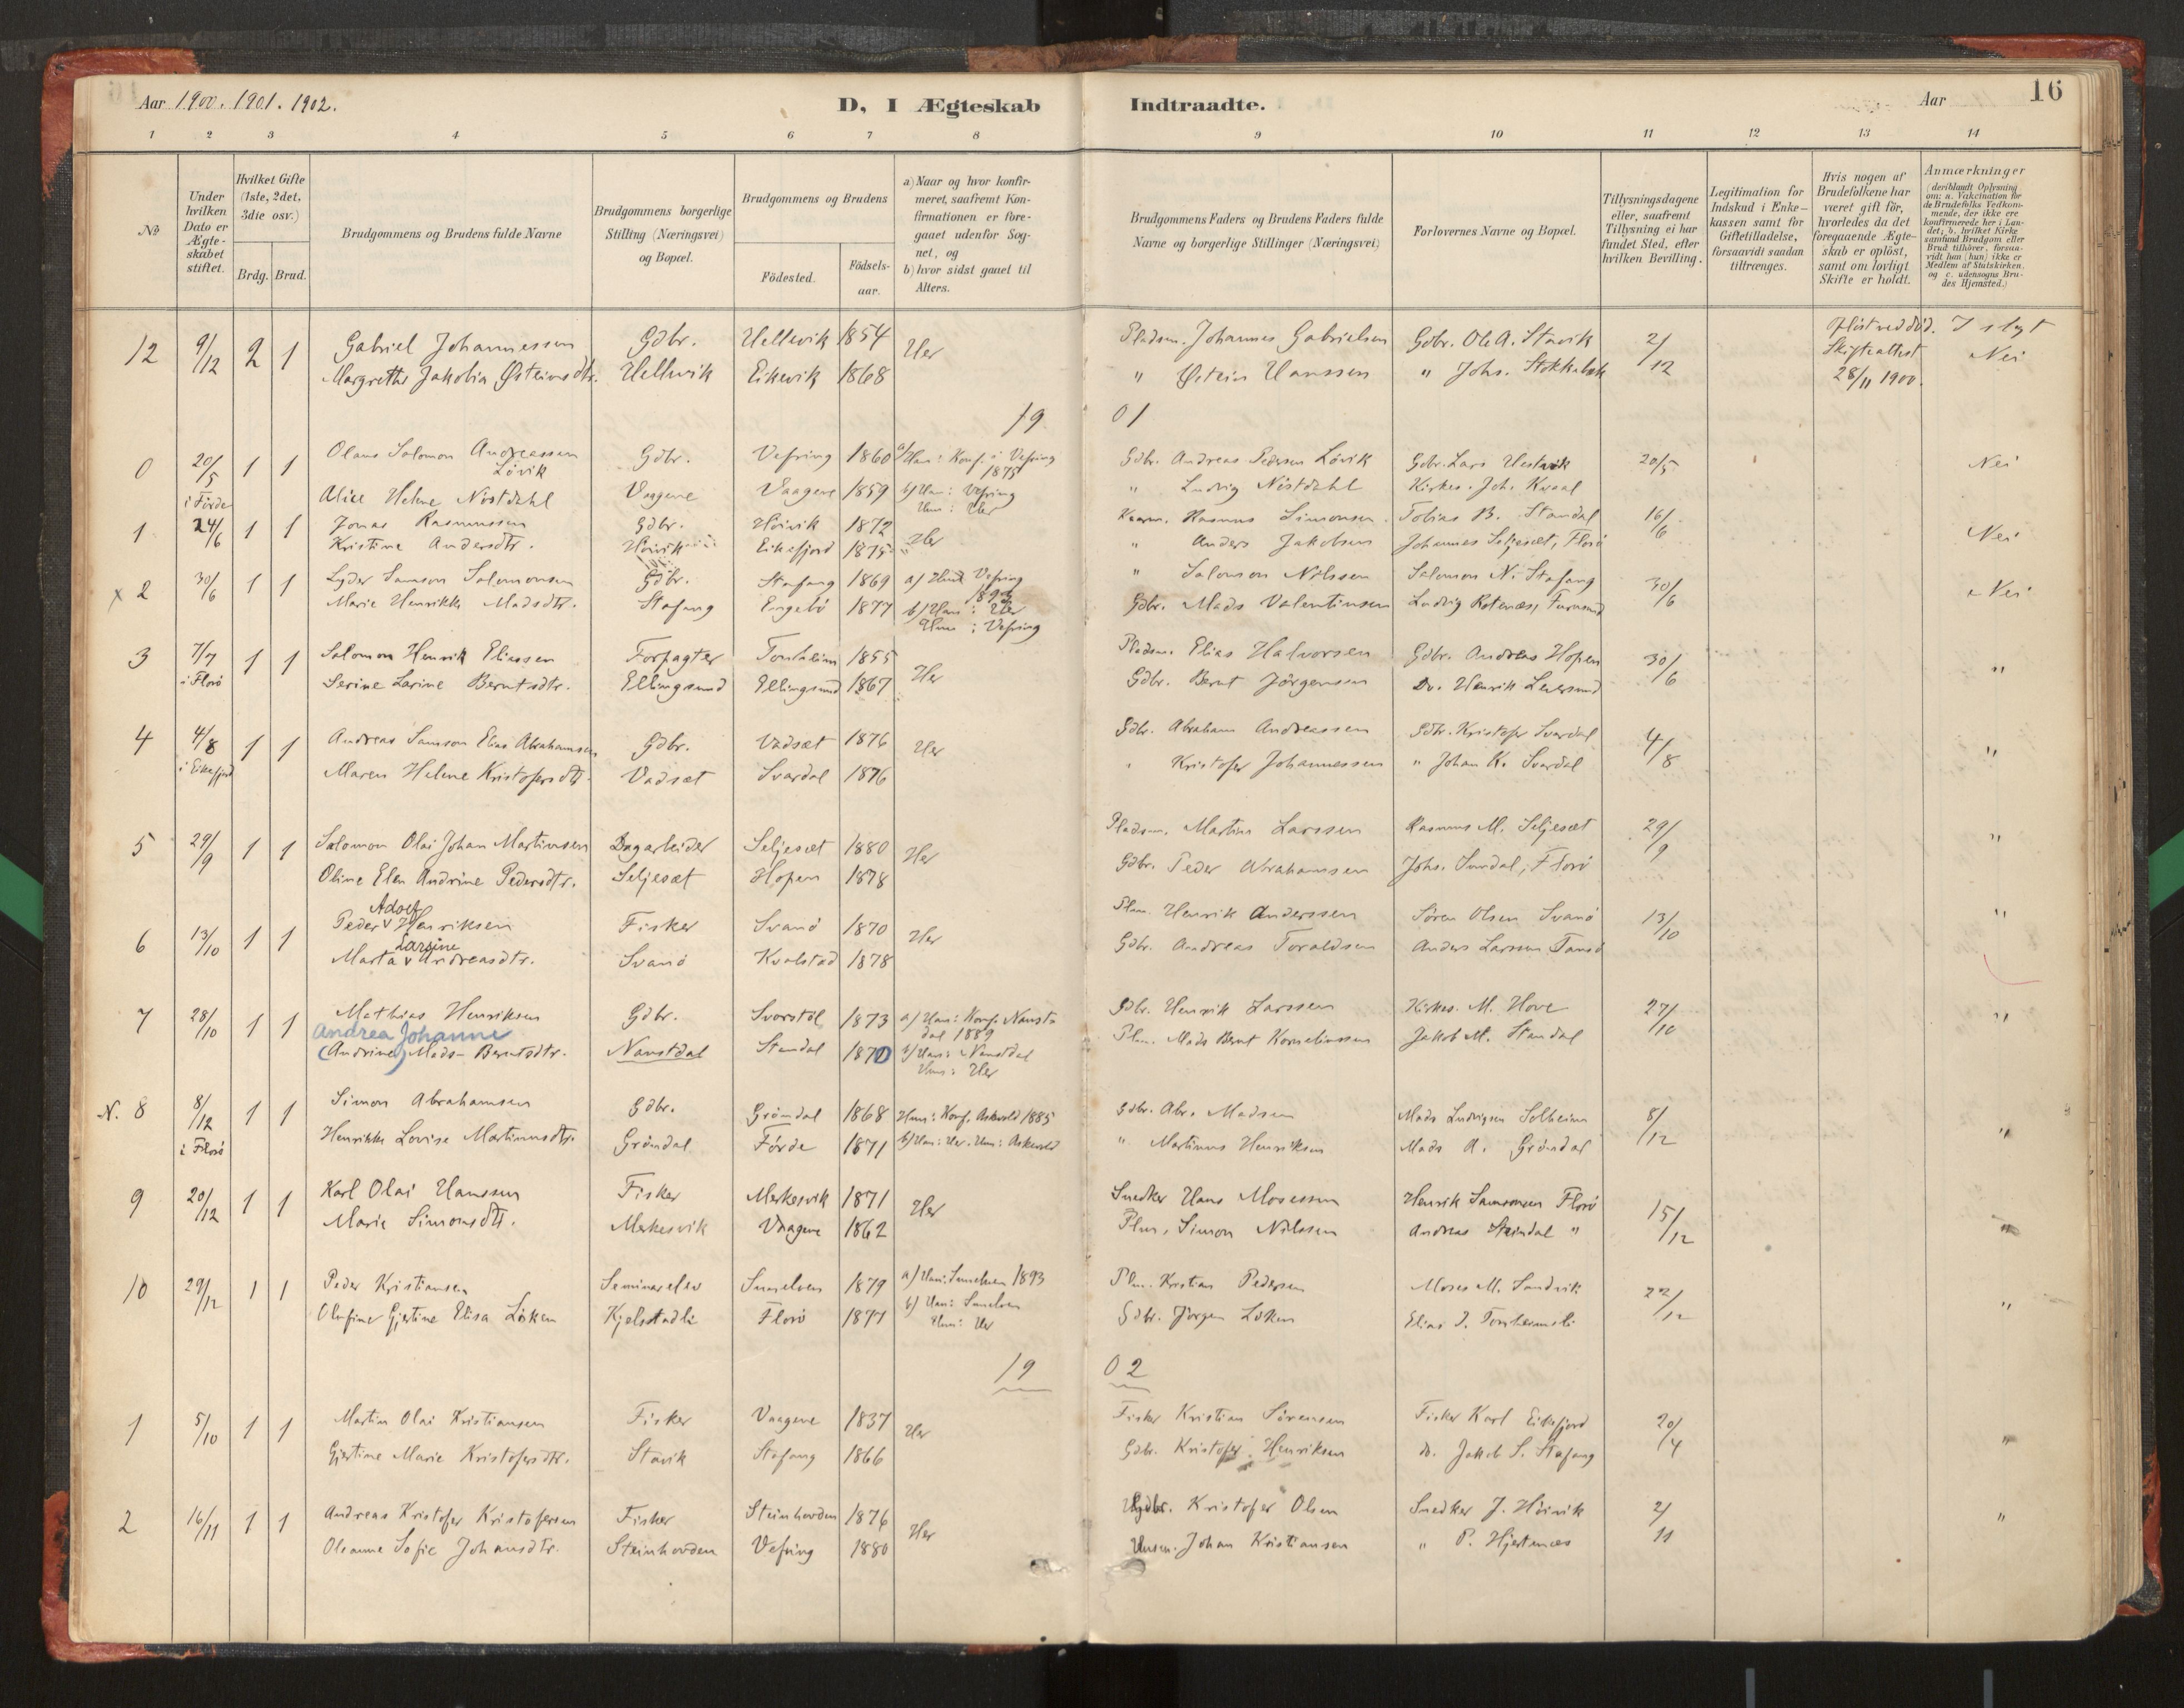 Aar 1900. 1901. 1902.
D, I Ægteskab Indtraadte.
Aar
16
1 2 3 4 5 6 7 8 9 10 11 12 13 14
№
Under hvilken Dato er Ægte-skabet stiftet.
Hvilket Gifte (1ste, 2det, 3die osv.)
Brdg. Brud.
Brudgommens og Brudens fulde Navne
Brudgommens borgerlige Stilling (Næringsvei) og Bopæl.
Brudgommens og Brudens
Födested.
Födsels-aar.
a) Naar og hvor konfir-meret, saafremt Kon-firmationen er fore-gaaet udenfor Sog-net, og
b) hvor sidst gaaet til Alters.
Brudgommens Faders og Brudens Faders fulde Navne og borgerlige Stillinger (Næringsvei)
Forlovernes Navne og Bopæl.
Tillysningsdagene eller, saafremt Tillysning ei har fundet Sted, efter hvilken Bevilling.
Legitimation for Indskud i Enke-kassen samt for Giftetilladelse, forsaavidt saadan tiltrænges.
Hvis nogen af Brudefolkene har været gift för, hvorledes da det foregaaende Ægte-skab er oplöst, samt om lovligt Skifte er holdt.
Anmærkninger (deriblandt Oplysning om: a. Vakcination for de Brudefolks Vedkom-mende, der ikke ere konfirmerede her i Lan-det; b. hvilket Kirke samfund Brudgom eller Brud tilhörer, forsaa-vidt han (hun) ikke er Medlem af Statskirken. og c. udensogns Bru-des Hjemsted.)
12 9/12 2 1 Gabriel Johannessen Gdbr. Hellevik 1854 Her Pladsm. Johannes Gabrielsen Gdbr. Ole A. Stavik 2/12 Oplöst ved död. I slyt
Margrethe Jakolia Østeinsdtr. Hellevik Eikevik 1868 " Østein Hanssen " Johs. Stokkebæk Skifteattest 28/11 1900. Nei
1901
0 20/5 i Förde 1 1 Olaus Salomon Andreassen Lövik Gdbr. Vefring 1860 a/ Han: Konf. i Vefring 1875 Gdbr. Andreas Pedersen Lövik Gdbr. Lars Hestvik 20/5 Nei
Alice Helene Nistdahl Vaagene Vaagene 1859 b/ Han: Vefring Hun: Her " Ludvig Nistdahl Kirkes. Joh. Kvaal
1 24/6 1 1 Jonas Rasmussen Gdbr. Höivik 1872 Her Kaarm. Rasmus Simonsen Tobias B. Standal 16/6 Nei
Kristine Andersdtr. Höivik Eikefjord 1875 " Anders Jakobsen Johannes Seljesæt, Florö
x 2 30/6 1 1 Lyder Samson Salomonsen Gdbr. Stafang 1869 a/ Hun Vefring " Salomon Nilssen Salomon N. Stafang 30/6 Nei
Marie Henrikke Madsdtr. Stafang Engebö 1877 b/ Han: Her Hun: Vefring Gdbr. Mads Valentinsen Ludvig Rotenæs, Furusund
3 7/7 i Florö 1 1 Salomon Henrik Eliassen Forpagter Tonheim 1855 Her Pladsm. Elias Halvorsen Gdbr. Andreas Hopen 30/6 "
Serine Larine Berntsdtr. Ellingsund Ellingsund 1867 Gdbr. Bernt Jörgensen Do. Henrik Leversund
4 4/8 i Eikefjord 1 1 Andreas Samson Elias Abrahamsen Gdbr. Vadsæt 1876 Her Gdbr. Abraham Andreassen Gdbr. Kristofer Svardal 4/8 "
Maren Helene Kristofersdtr. Vadsæt Svardal 1876 " Kristofer Johannessen " Johan K. Svardal
5 29/9 1 1 Salomon Olai Johan Martinsen Dagarbeider Seljesæt 1880 Her Pladsm. Martin Larssen Rasmus M. Seljesæt 29/9 "
Oline Elen Andrine Pedersdtr. Seljesæt Hopen 1878 Gdbr. Peder Abrahamsen Johs. Sundal, Florö
6 13/10 1 1 Peder Adolf Henriksen Fisker Svanö 1870 Her Plm. Henrik Anderssen Sören Olsen Svanö 13/10 "
Marta Larsine Andreasdtr. Svanö Kvalstad 1878 Gdbr. Andreas Toraldsen Anders Larssen Tansö
7 28/10 1 1 Mathias Henriksen Gdbr. Svorstöl 1873 a/ Han: Konf. Naustdal 1889 Gdbr. Henrik Larssen Kirkes. M. Hove 27/10 "
Andrea Johanne
(Andrine) Mads-Berntsdtr. Naustdal Standal 1870 b/ Han: Naustdal Hun: Her Plm. Mads Bernt Korneliussen Jakob M. Standal
N. 8 8/12 i Florö 1 1 Simon Abrahamsen Gdbr. Gröndal 1868 Hun: Konf. Askvold 1885 Gdbr. Abr. Madsen Mads Ludvigsen Solheim 8/12 "
Henrikke Lovise Martinusdtr. Gröndal Førde 1871 b/ Han: Her. Hun: Askevold " Martinus Henriksen Mads A. Gröndal
9 20/12 1 1 Karl Olai Hanssen Fisker Merkesvik 1871 Her Snedker Hans Mosessen Henrik Samsonsen Florö 15/12 "
Marie Simonsdtr. Merkesvik Vaagene 1862 Plm. Simon Nilssen Andreas Steindal "
10 29/12 1 1 Peder Kristiansen Seminarelev Sunelven 1879 a/ Han: Sunelven 1893 Plm. Kristian Pedersen Moses M. Sandvik 22/12 "
Olufine Gjertine Elisa Löken Kjelstadli Florö 1877 b/ Han: Sunelven Hun: Her Gdbr. Jörgen Löken Elias J. Tonheimsli
1902
1 5/10 1 1 Martin Olai Kristiansen Fisker Vaagene 1837 Her Fisker Kristian Sörensen Fisker Karl Eikefjord 20/4 "
Gjertine Marie Kristofersdtr. Stavik Stafang 1866 Gdbr. Kristofer Henriksen do. Jakob S. Stafang
2 16/11 1 1 Andreas Kristofer Kristofersen Fisker Steinhovden 1876 Her Gdbr. Kristofer Olsen Snedker J. Höivik 2/11 "
Oleanne Sofie Johansdtr. Steinhovden Vefring 1880 Husm. Johan Kristiansen " P. Hjertenæs